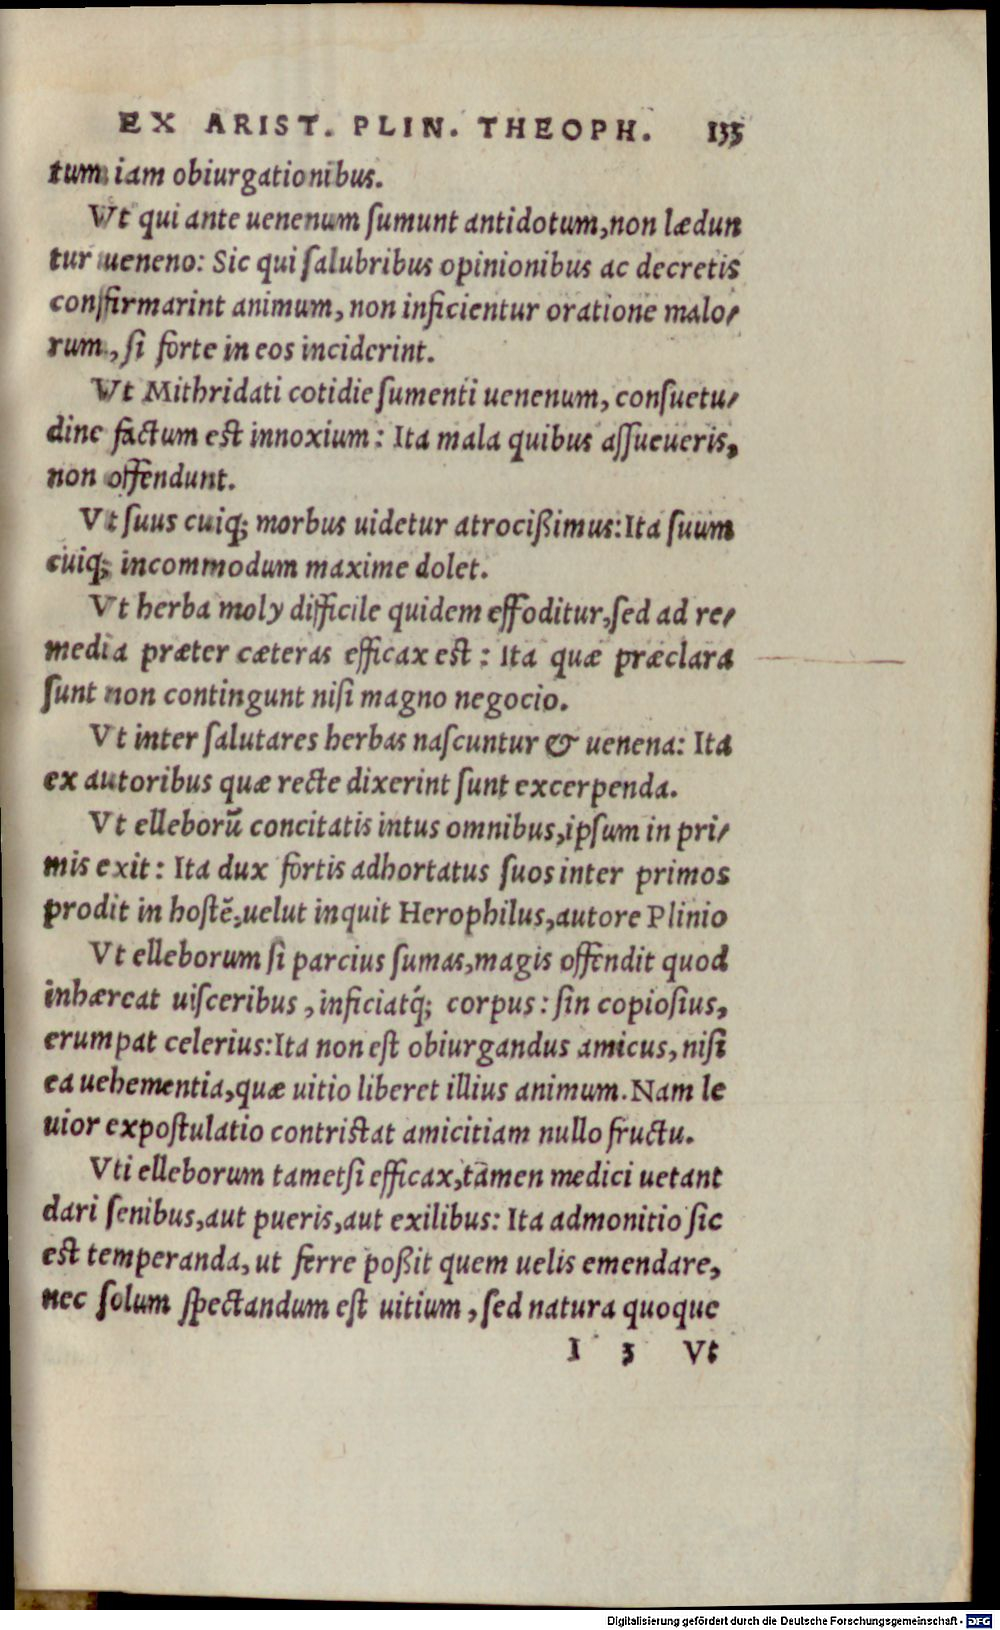 EX ARIST. PLIN. THEOPH. 133
tum iam obiurgationibus.
Vt qui ante uenenum ſumunt antidotum, non lædun
tur ueneno: Sic qui ſalubribus opinionibus ac decretis
confirmarint animum, non inficientur oratione malo⸗
rum, ſi forte in eos inciderint.
Vt Mithridati cotidie ſumenti uenenum, conſuetu⸗
dine factum est innoxium: Ita mala quibus aſſueueris,
non offendunt.
Vt ſuus cuiq; morbus uidetur atrocißimus: Ita ſuum
cuiq; incommodum maxime dolet.
Vt herba moly difficile quidem effoditur, ſed ad re⸗
media præter cæteras efficax est: Ita quæ præclara
ſunt non contingunt niſi magno negocio.
Vt inter ſalutares herbas naſcuntur & uenena: Ita
ex autoribus quæ recte dixerint ſunt excerpenda.
Vt elleborū concitatis intus omnibus, ipſum in pri⸗
mis exit: Ita dux fortis adhortatus ſuos inter primos
prodit in hoſtē, uelut inquit Herophilus, autore Plinio
Vt elleborum ſi parcius ſumas, magis offendit quod
inhæreat uiſceribus, inficiatq́; corpus: ſin copioſius,
erumpat celerius: Ita non eſt obiurgandus amicus, niſi
ea uehementia, quæ uitio liberet illius animum. Nam le
uior expoſtulatio contriſtat amicitiam nullo fructu.
Vti elleborum tametſi efficax, tamen medici uetant
dari ſenibus, aut pueris, aut exilibus: Ita admonitio ſic
est temperanda, ut ferre poßit quem uelis emendare,
nec ſolum ſpectandum eſt uitium, ſed natura quoque
I 3 Vt
Digitalisierung gefördert durch die Deutsche Forschungsgemeinschaft - DFG